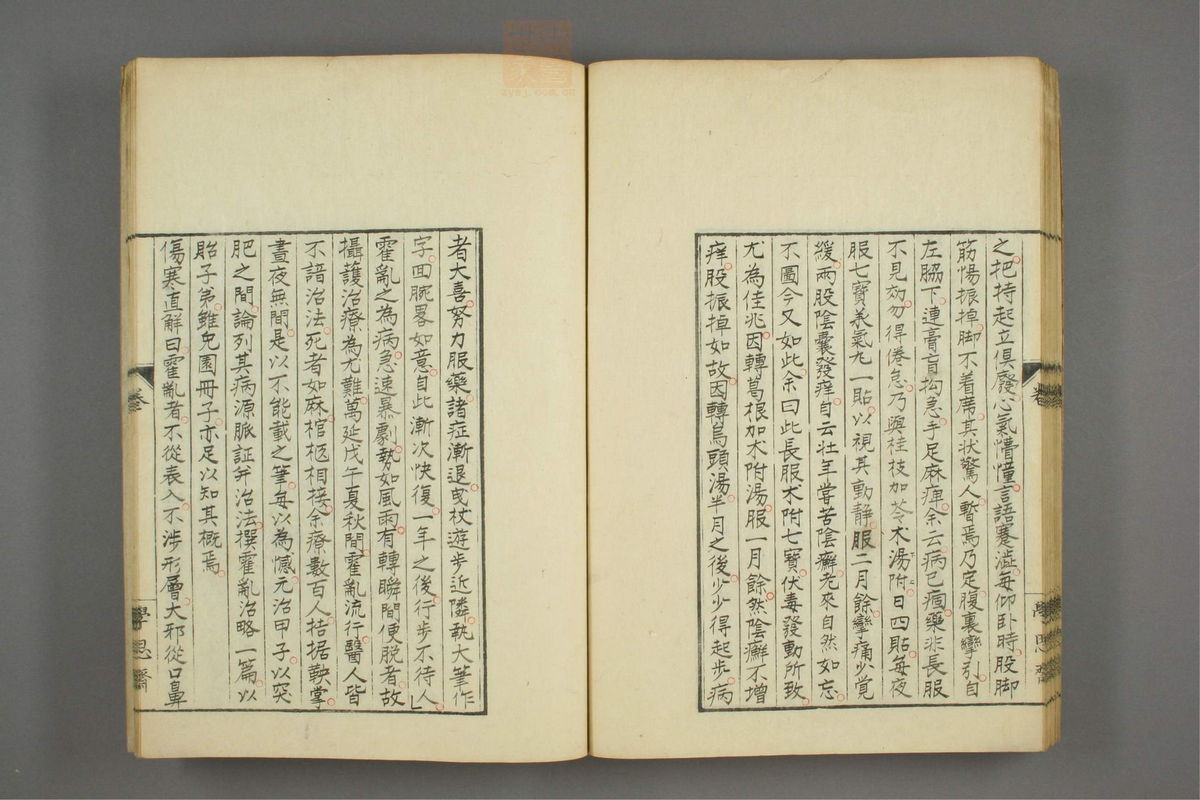 之把持起立俱廢心氣懵憧言語蹇澁每仰卧時股脚
筋惕振掉脚不着蓆其狀驚人暫焉乃定腹裏攣引自
左脇下連膏肓拘急手足麻痺余云病已痼藥非長服
不見効勿得倦怠乃與桂枝加苓朮湯附日四貼每夜
服七寶承氣丸一貼以視其動静服二月餘攣痛少覺
緩兩股陰囊發痒自云壯年嘗苦陰癬老來自然如忘
不圖今又如此余曰此長服朮附七寶伏毒發動所致
尤為佳兆因轉葛根加朮附湯服一月餘然陰癬不增
痒股振掉如故因轉烏頭湯半月之後少少得起步病
者大喜努力服藥諸症漸退曳杖遊步近隣執大筆作
字回腕畧如意自此漸次快復一年之後行步不待人
霍亂之為病急速暴劇勢如風雨有轉瞬間便脫者故
攝護治療為尤難萬延戊午夏秋間霍亂流行醫人皆
不諳治法死者如麻棺柩相接余療數百人拮据鞅掌
晝夜無間是以不能載之筆每以為憾元治甲子以突
肥之間論列其病源脈証并治法撰霍亂治略一篇以
貽子弟雖兔園冊子亦足以知其概焉
傷寒直解曰霍亂者不從表入不涉形層大邪從口鼻
卷
學思齋